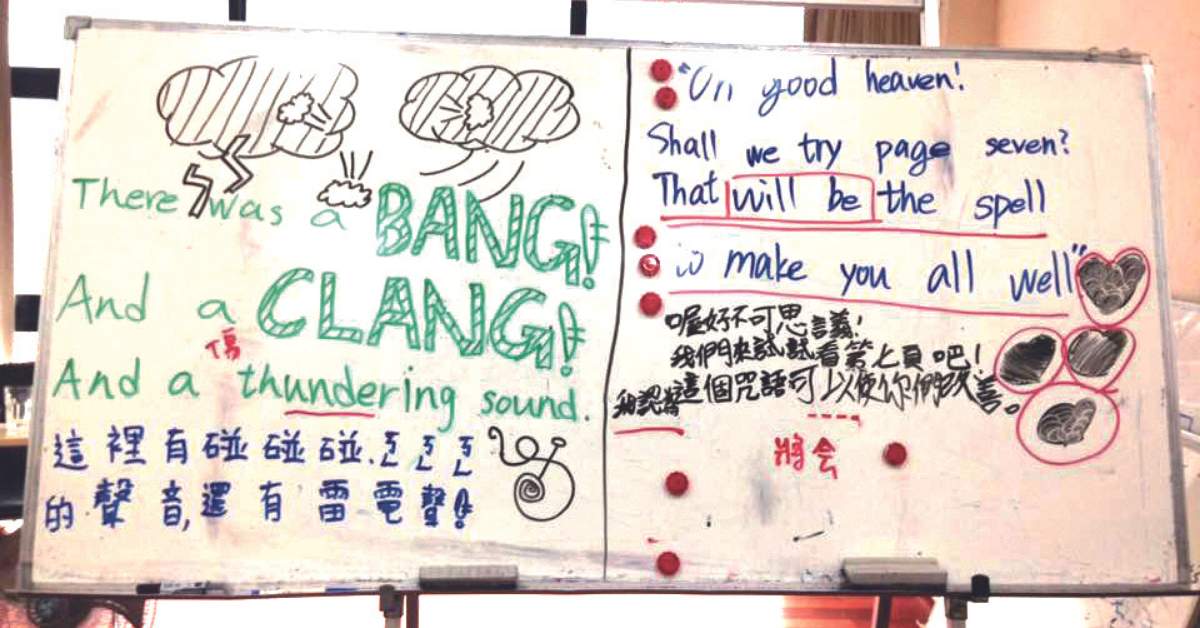 There was a BANG!
And a CLANG!
傷
And a thundering sound.
這裡有碰碰碰.ㄛㄥㄛㄥㄛㄥ
的聲音,還有雷電聲!
"Oh good heaven!
Shall we try page seven?
That will be the spell
to make you all well"
喔好不可思議!
我們來試試看第七頁吧!
我認為這個咒語可以使你們改善。
將会